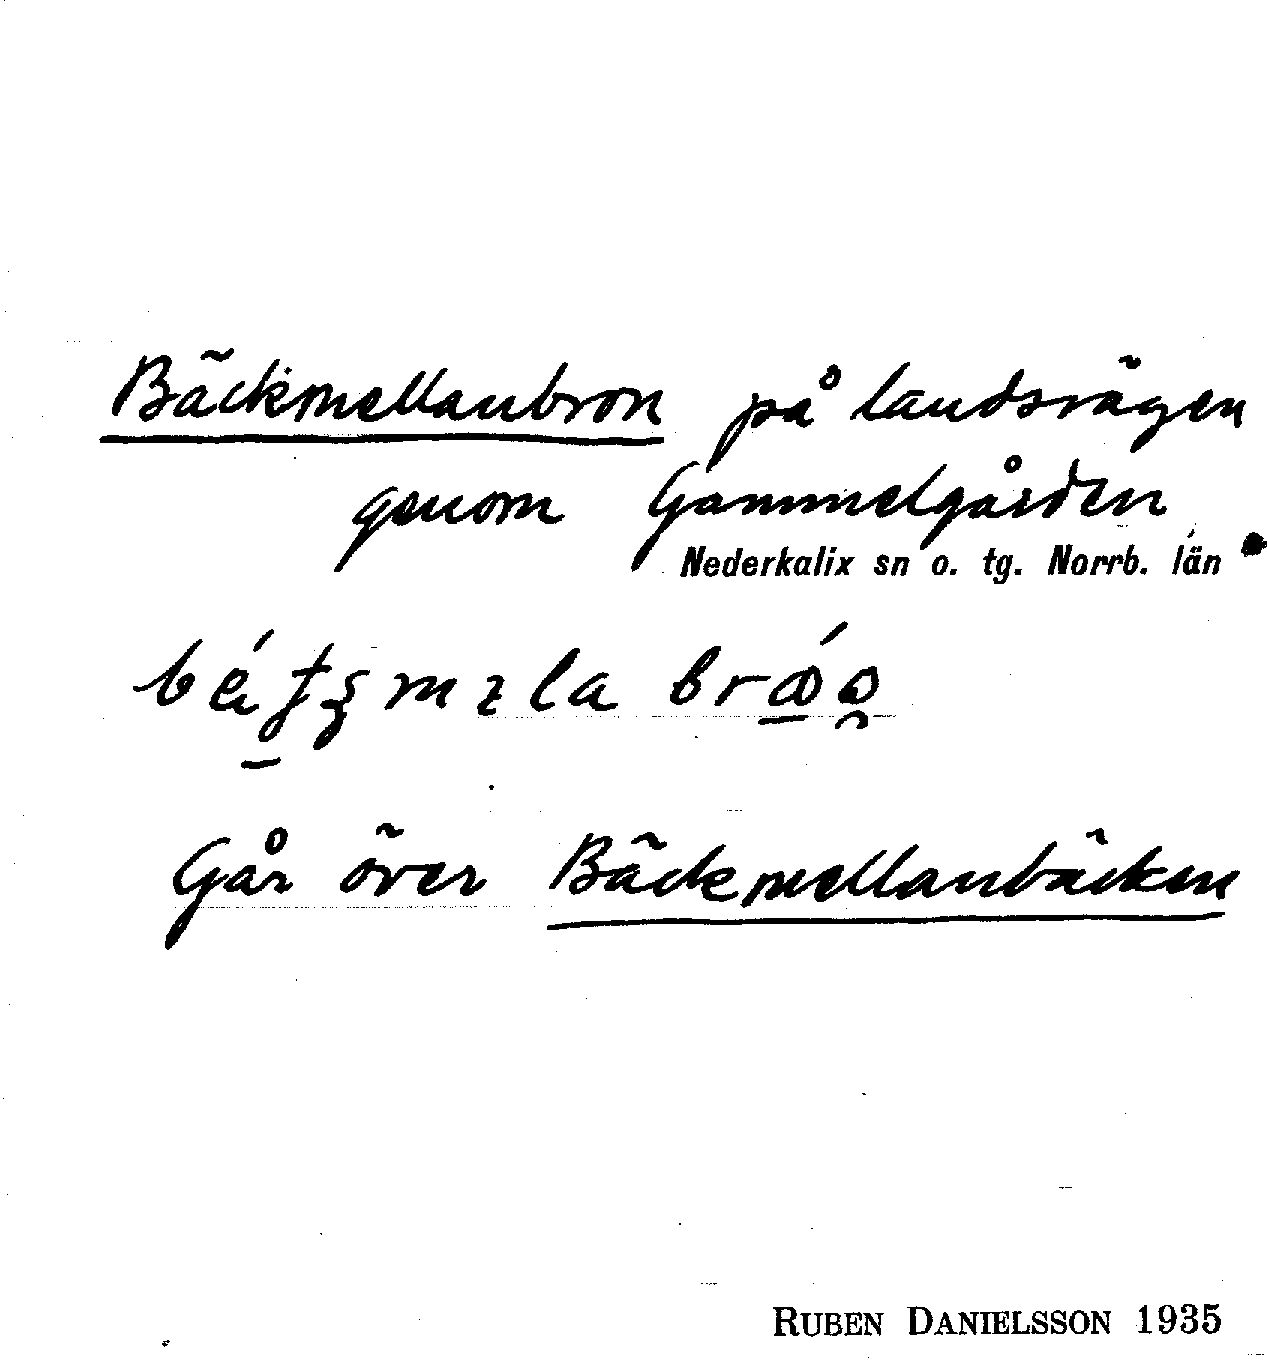 Bäckmellanbron på landsvägen
genom Gammelgården
Nederkalix sn o. tg. Norrb. län
Går över Bäckmellanbäcken
RUBEN DANIELSSON 1935